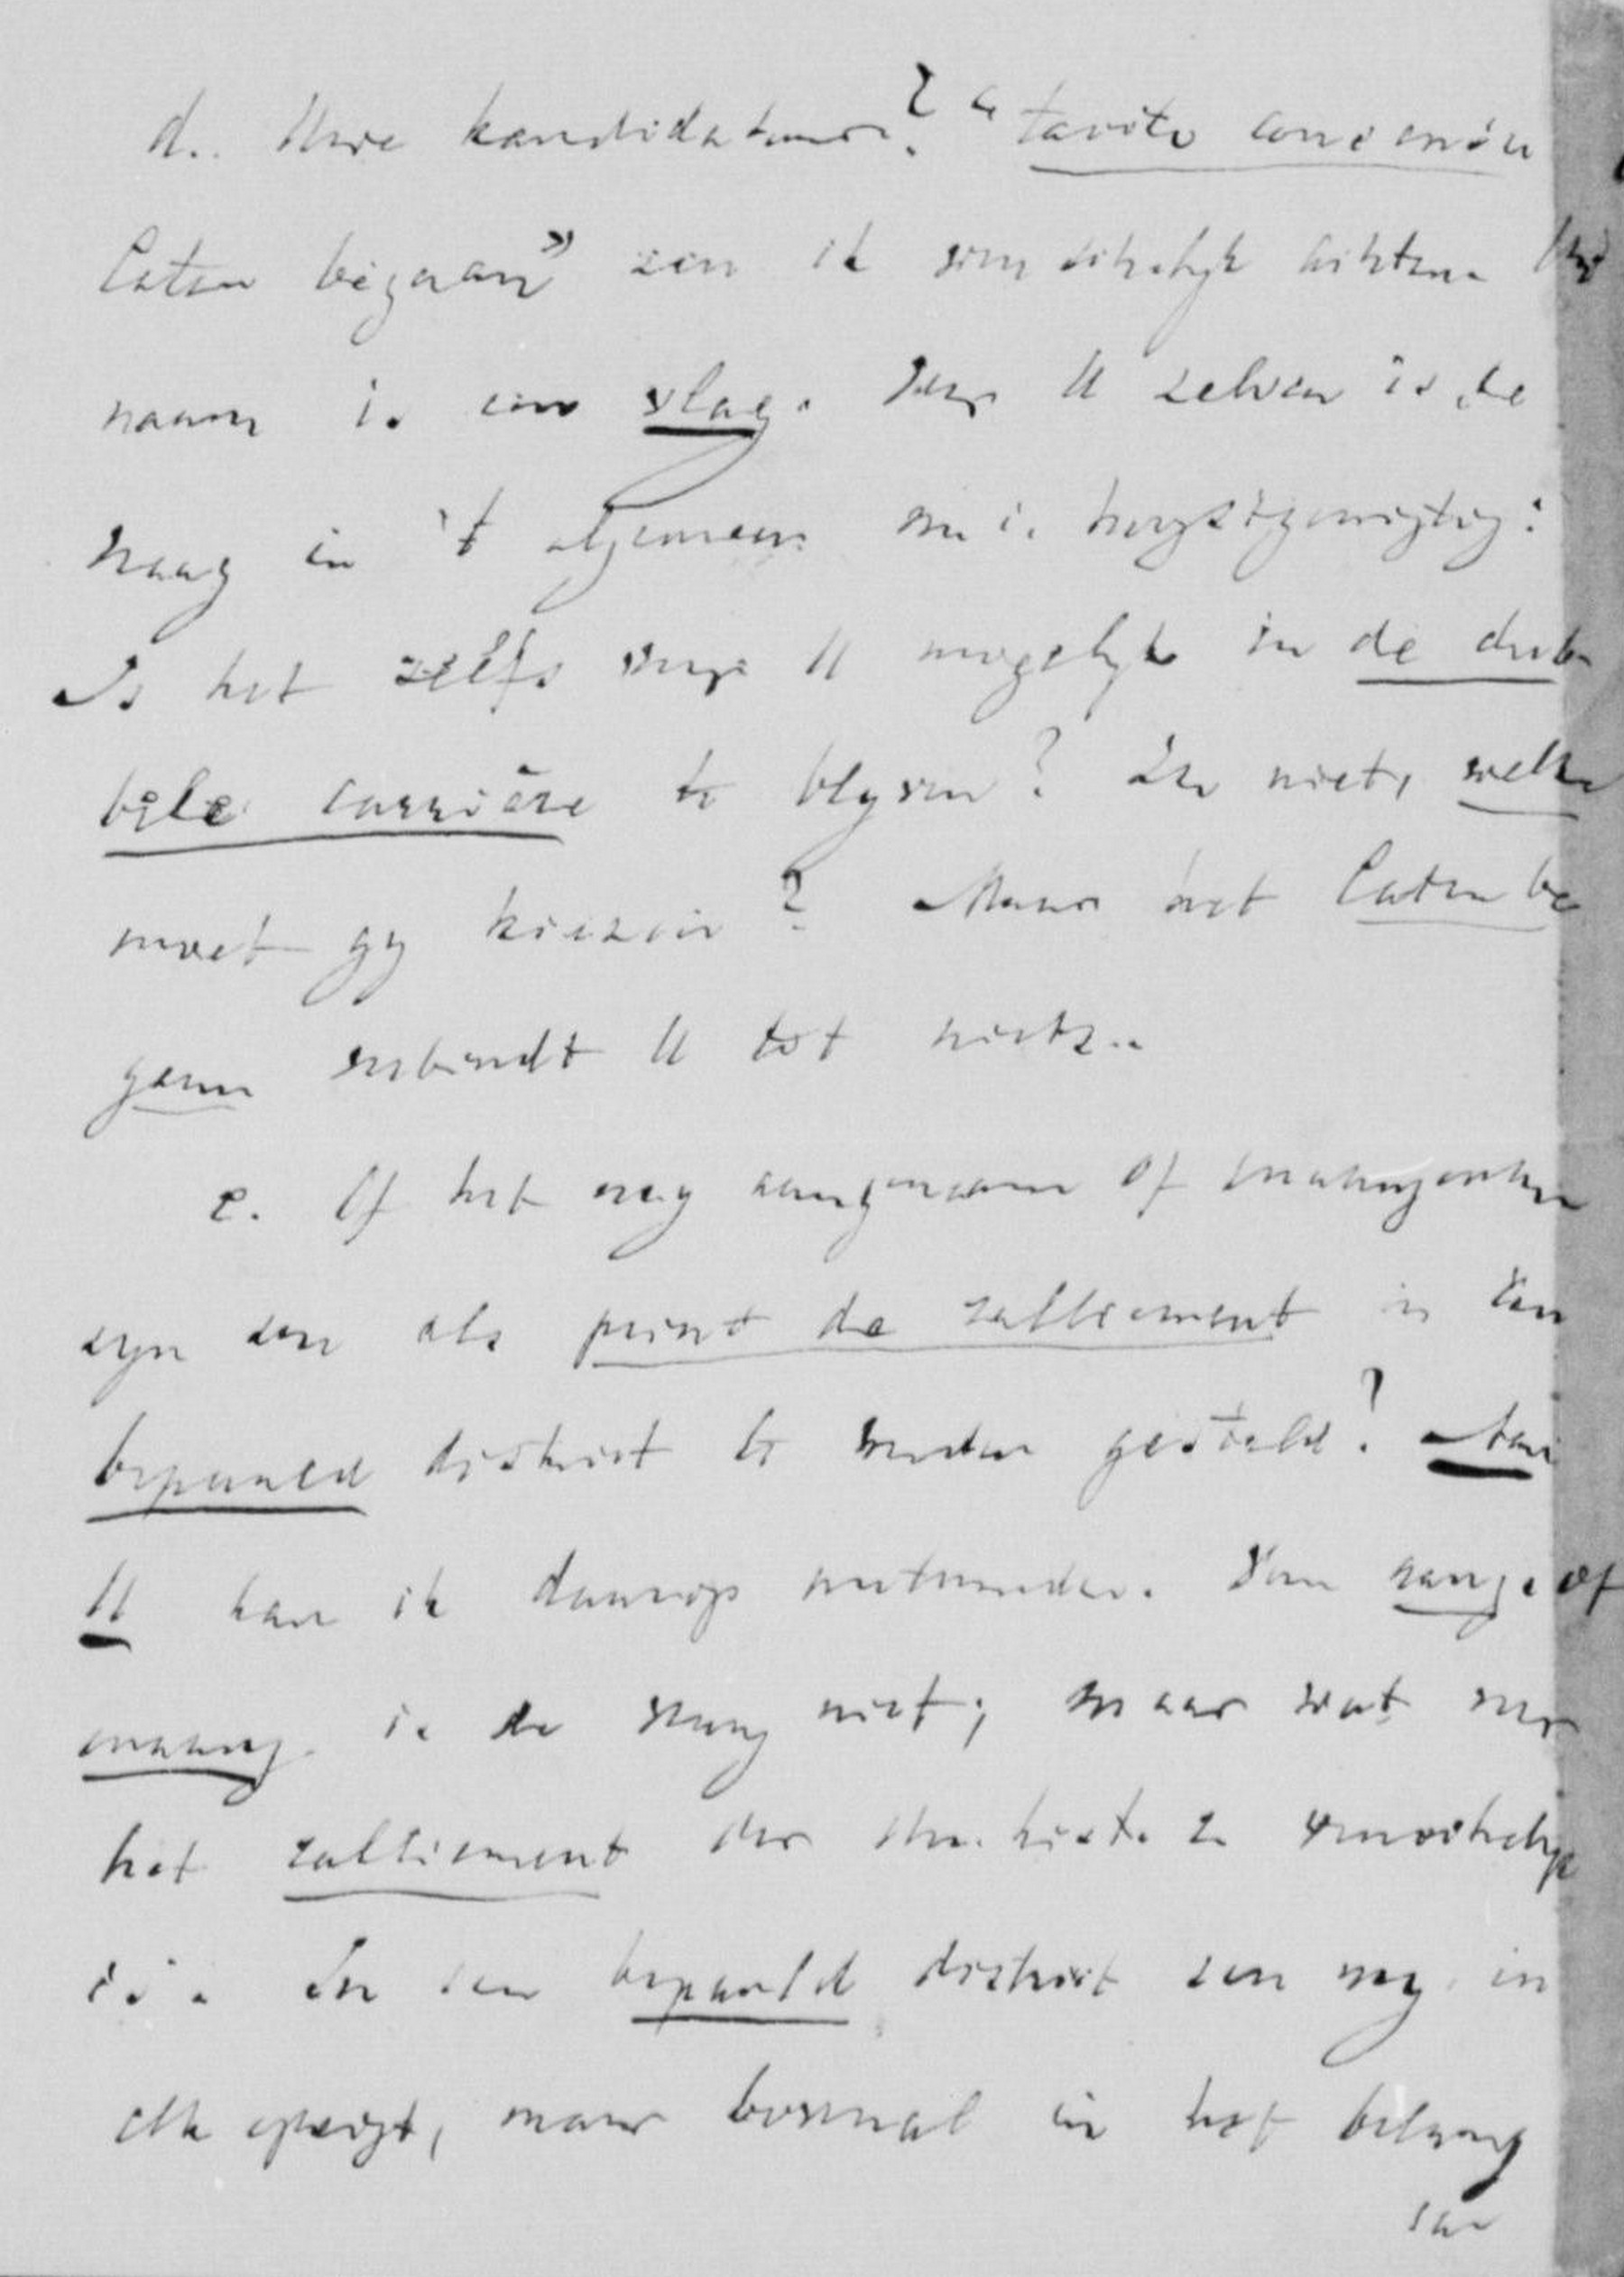 d. Uwe kandidatuur? "tacito consensu
laten begaan" zou ik verderfelijk achten. Uw
naam is een vlag. Voor U zelven is de
vraag in 't algemeen m.i. hoogstgewigtig:
Is het zelfs voor U mogelyk in de dub-
bele carrière te blyven? Zoo niet, welke
moet gy kiezen? Maar het laten be
gaan verbindt U tot niets.
e. Of het my aangenaam of onaangenaam
zyn zou als point de ralliement in een
bepaald district te worden gesteld? Aan
U kan ik daarop antwoorden. Van aang. of
onaang. is de vraag niet; maar wat voor
het ralliement der Chr. hist. rt. verderfelyk
is. In een bepaald district zou my, in
elk opzigt, maar bovenal in het belang
van